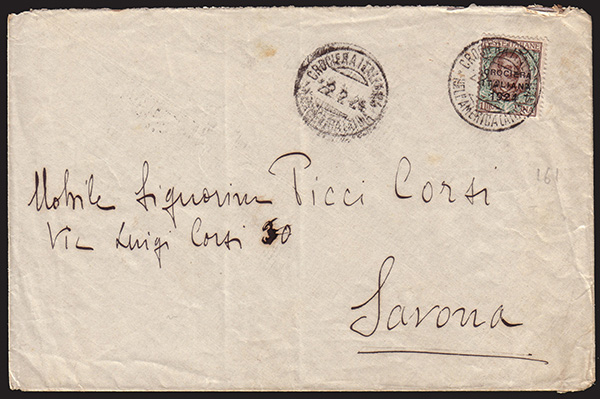 CROCIERA ITALIANA
22.2.24
AMERICA LATINA
CROCIERA
AMERICA LATINA
CROCIERA
ITALIANA
1924
161
Nobile Signorina Picci Corsi
Via Luigi Corsi 30
Savona